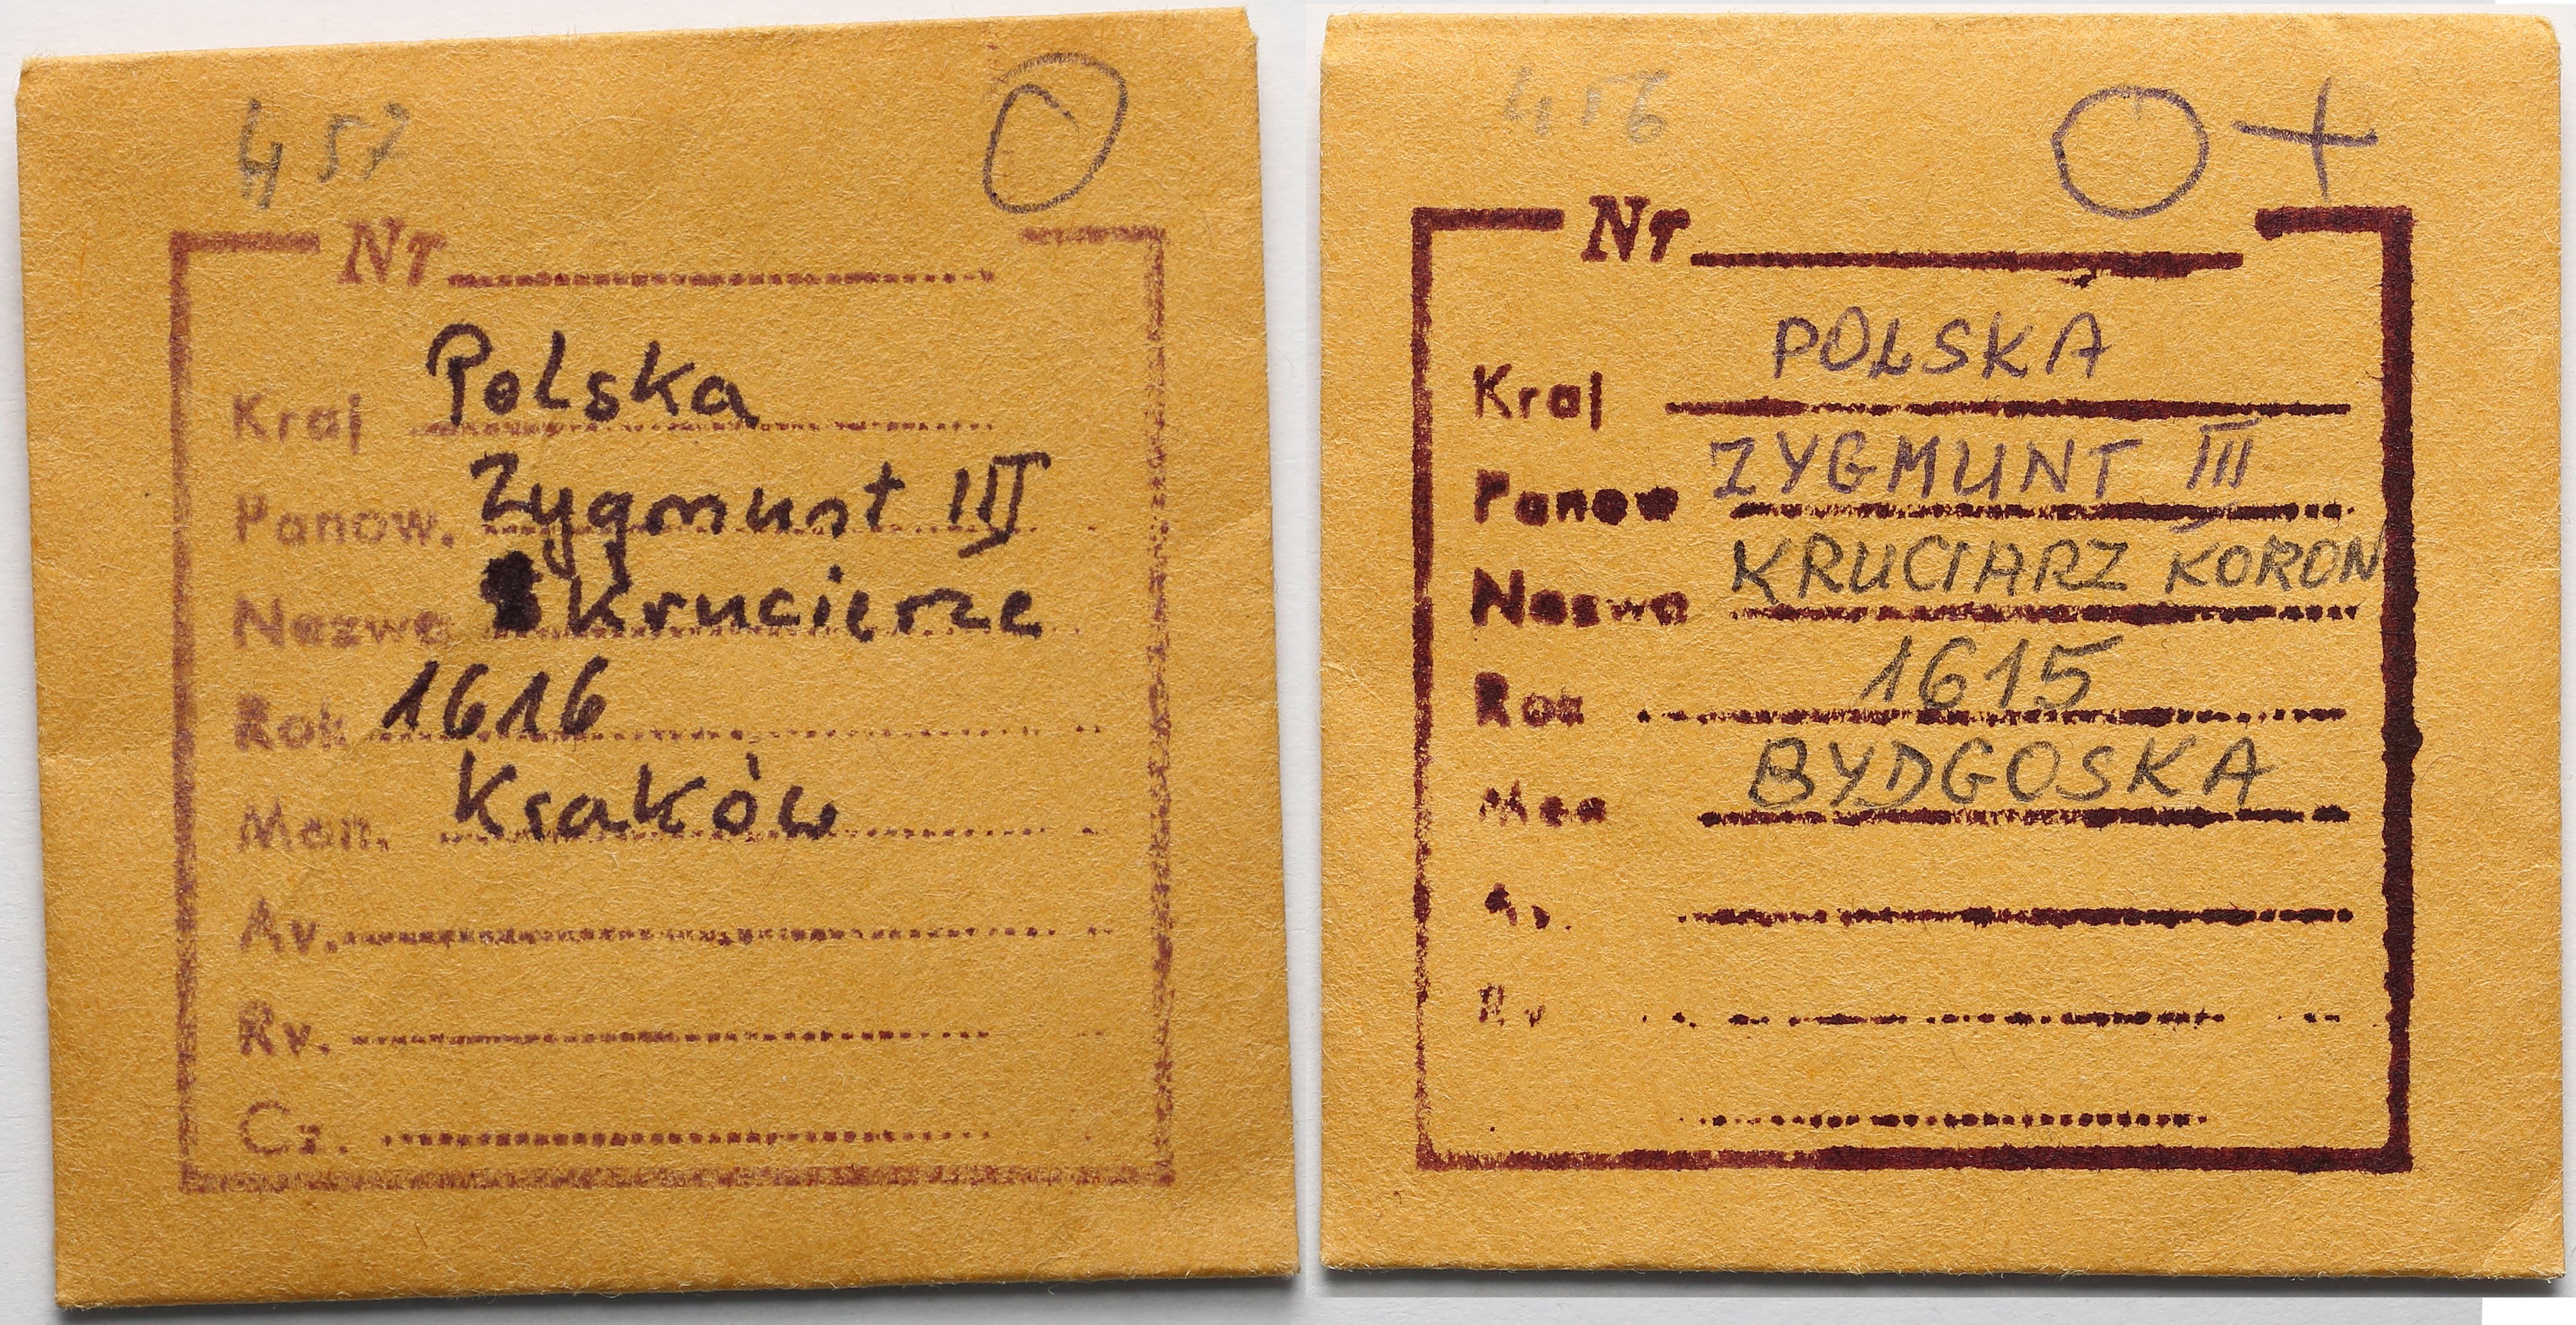 457
O
Nr
Kraj Polska
Panow. Zygmunt III
Nazwa Krucierze
Rok 1616
Men. Kraków
Av.
Rv.
Cz.
456
O +
Nr
Kraj POLSKA
Panow ZYGMUNT III
Nazwa KRUCIARZ KORON
Rok 1615
Men BYDGOSKA
Av.
Rv